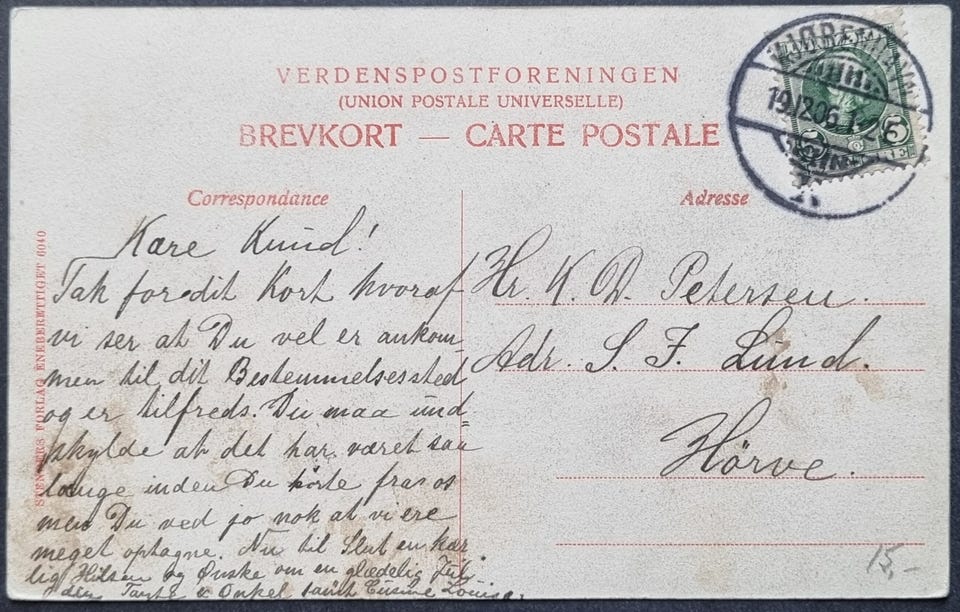 VERDENSPOSTFORENINGEN
(UNION POSTALE UNIVERSELLE)
BREVKORT — CARTE POSTALE
KJØBENHAVN
19.12.06
5 5
Correspondance
Kære Knud!
Tak for dit Kort hvoraf
vi ser at Du vel er ankom-
men til dit Bestemmelsessted
og er tilfreds. Du maa und=
skylde at det har været saa
længe inden Du hörte fra os
men Du ved jo nok at vi ere
meget optagne. Nu til Slut en kær-
lig Hilsen og Ønske om en glædelig Jul
din Tante & Onkel samt Cusine Louise.
Adresse
Hr. K. D. Petersen.
Adr. S. F. Lund.
Hörve.
STENDERS FORLAG ENEBERETIGET 6040
15,-